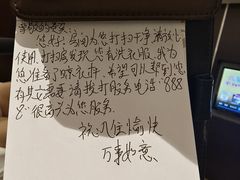 尊敬的贵宾
您好！房间为您打扫干净请放心
使用。打扫房发现您有洗衣服，我为
您准备了晾衣架，希望可以帮到您
有其它需要请拨打服务电话"888
很高兴为您服务。
祝入住愉快
万事如意